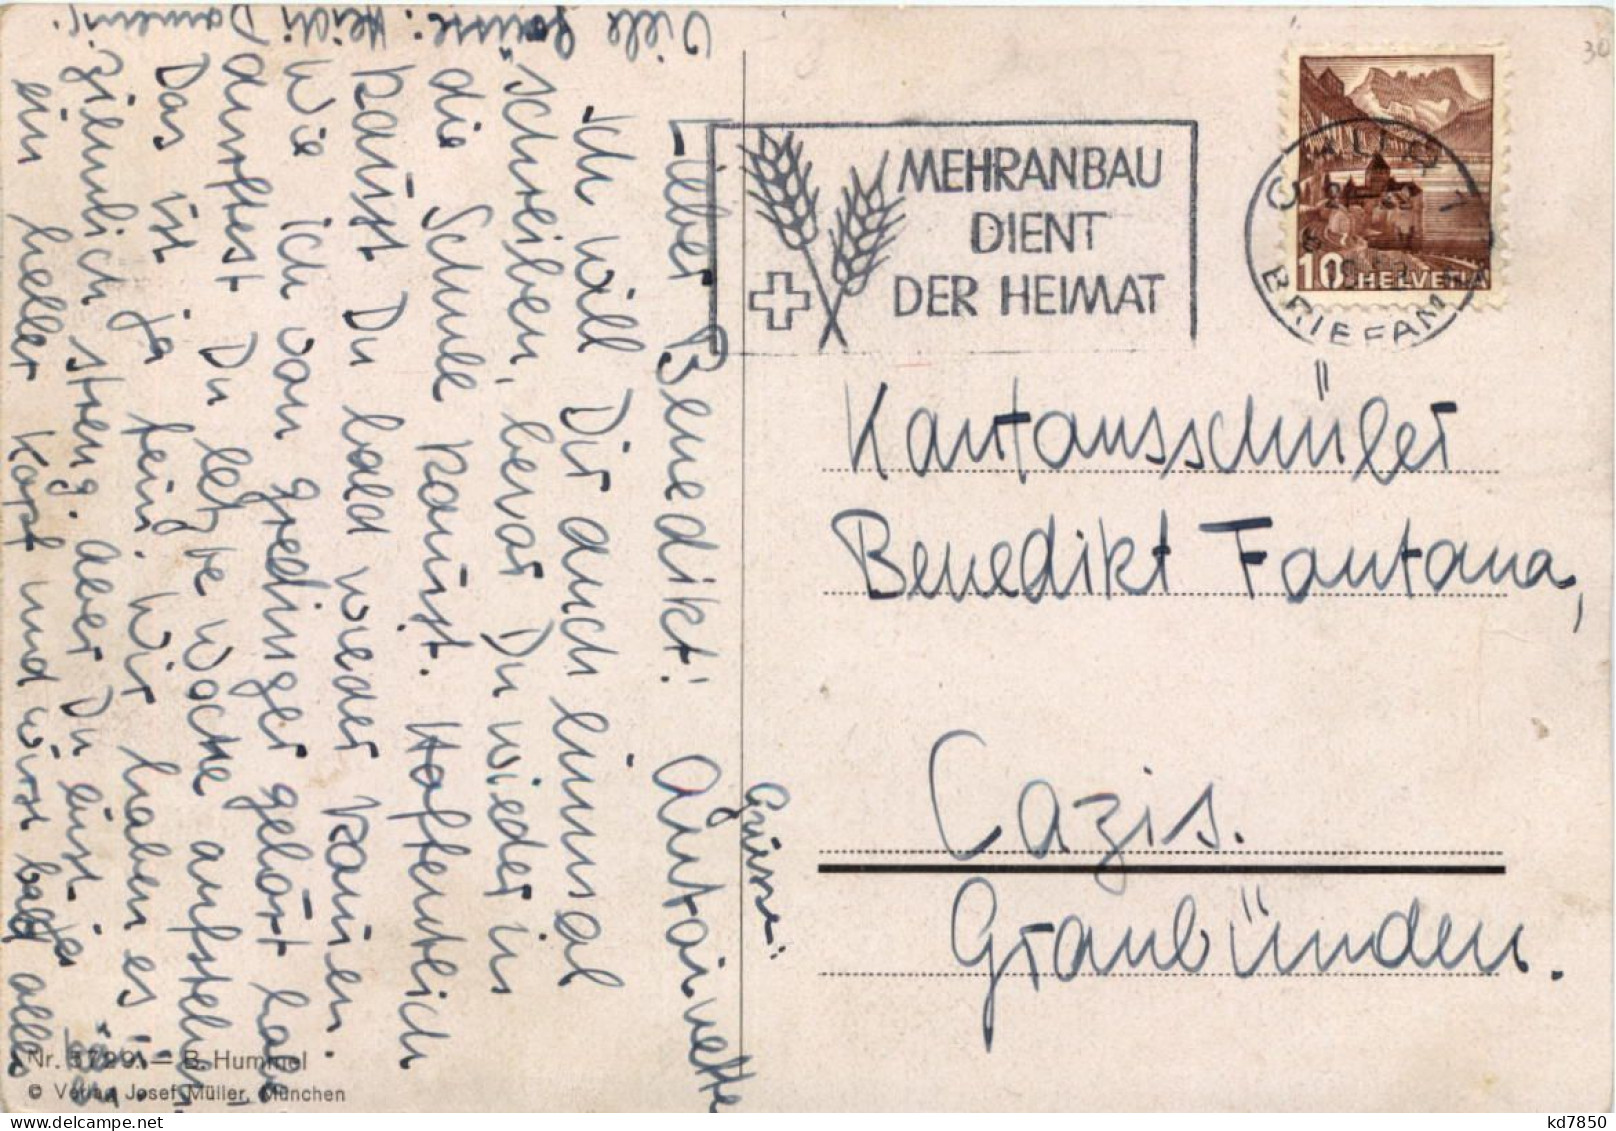 Viele Grüsse: Heidi
Lieber Benedikt! Antoinette
Grüsse:
Ich will Dir auch einmal
schreiben, bevor Du wieder in
die Schule kannst. Hoffentlich
kannst Du bald wieder
Wie ich von gehört habe
durftest Du letzte Woche aufstehen.
Das ist ja fein. Wir haben es
ziemlich streng. Aber Du bist ja
ein heller Kopf und wirst bald alles
Nr. B. Hummel
© Verlag Josef Müller, München
MEHRANBAU
DIENT
DER HEIMAT
10 HELVETIA
BRIEFAM
Kantonsschüler
Benedikt Fontana,
Cazis.
Graubünden.
30
kd7850